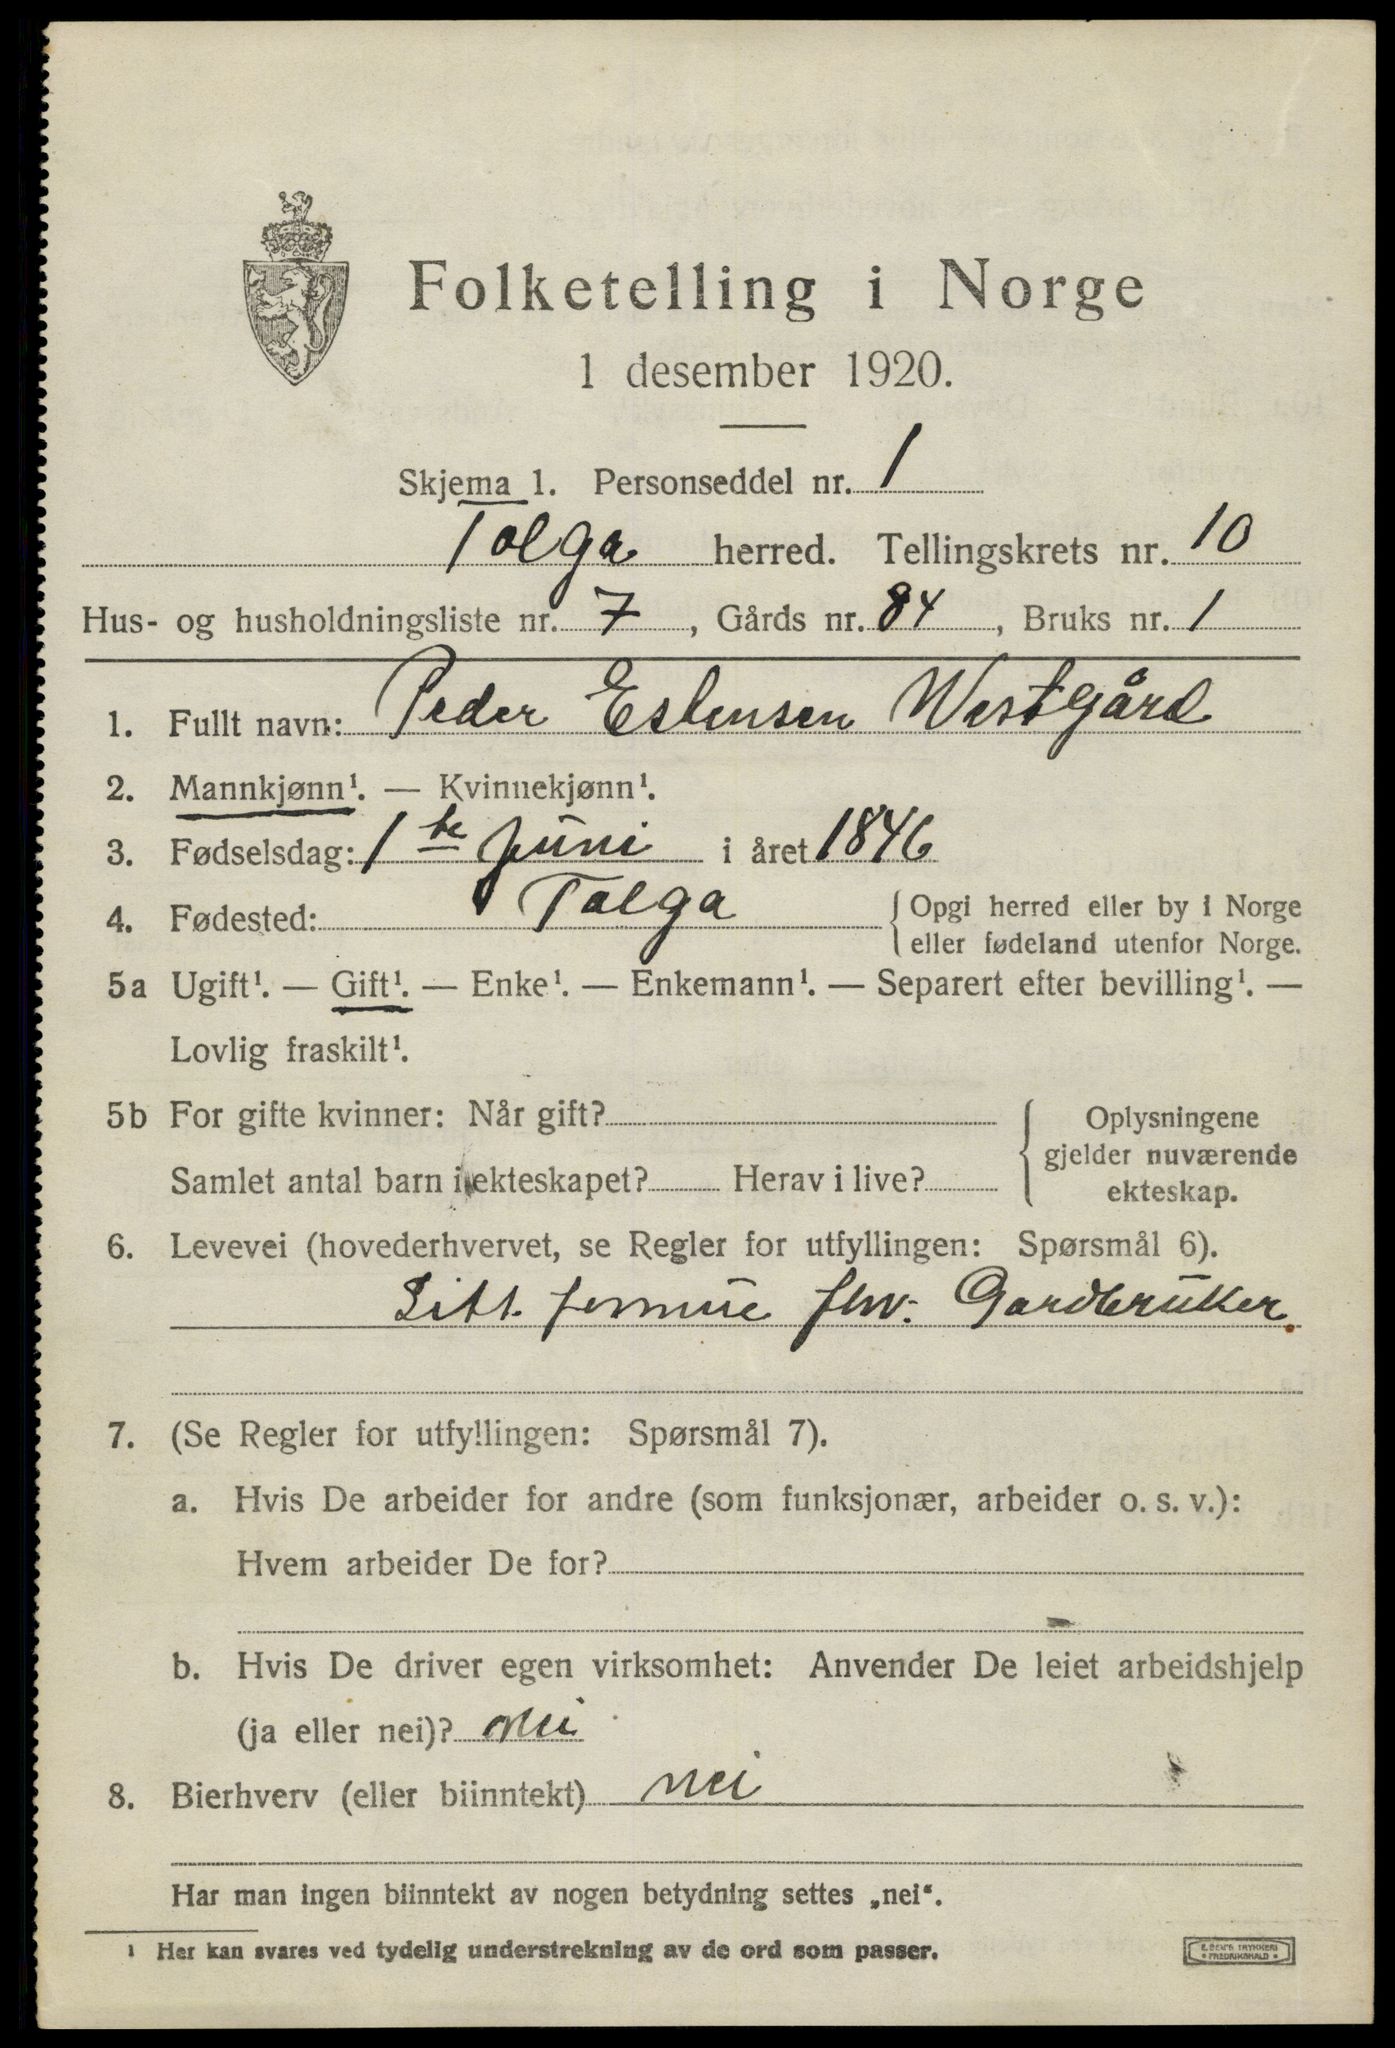 Folketelling i Norge
1 desember 1920.
Skjema 1. Personseddel nr. 1
Tolga herred. Tellingskrets nr. 10
Hus- og husholdningsliste nr. 7, Gårds nr. 84, Bruks nr. 1
1. Fullt navn: Peder Estensen Westgård
2. Mannkjønn¹. — Kvinnekjønn¹.
3. Fødselsdag: 1 te Juni i året 1846
4. Fødested: Tolga {Opgi herred eller by i Norge
eller fødeland utenfor Norge.
5a Ugift¹. — Gift¹. — Enke¹. — Enkemann¹. — Separert efter bevilling¹. —
Lovlig fraskilt¹.
5b For gifte kvinner: Når gift? { Oplysningene
gjelder nuværende
Samlet antal barn i ekteskapet? Herav i live? ekteskap.
6. Levevei (hovederhvervet, se Regler for utfyllingen: Spørsmål 6).
formue fhv. Gardbruker.
7. (Se Regler for utfyllingen: Spørsmål 7).
a. Hvis De arbeider for andre (som funksjonær, arbeider o. s. v.):
Hvem arbeider De for?
b. Hvis De driver egen virksomhet: Anvender De leiet arbeidshjelp
(ja eller nei)? nei
8. Bierhverv (eller biinntekt) nei
Har man ingen biinntekt av nogen betydning settes „nei“.
¹ Her kan svares ved tydelig understrekning av de ord som passer.
E. SEM'S TRYKKERI
• FREDRIKSHALD •